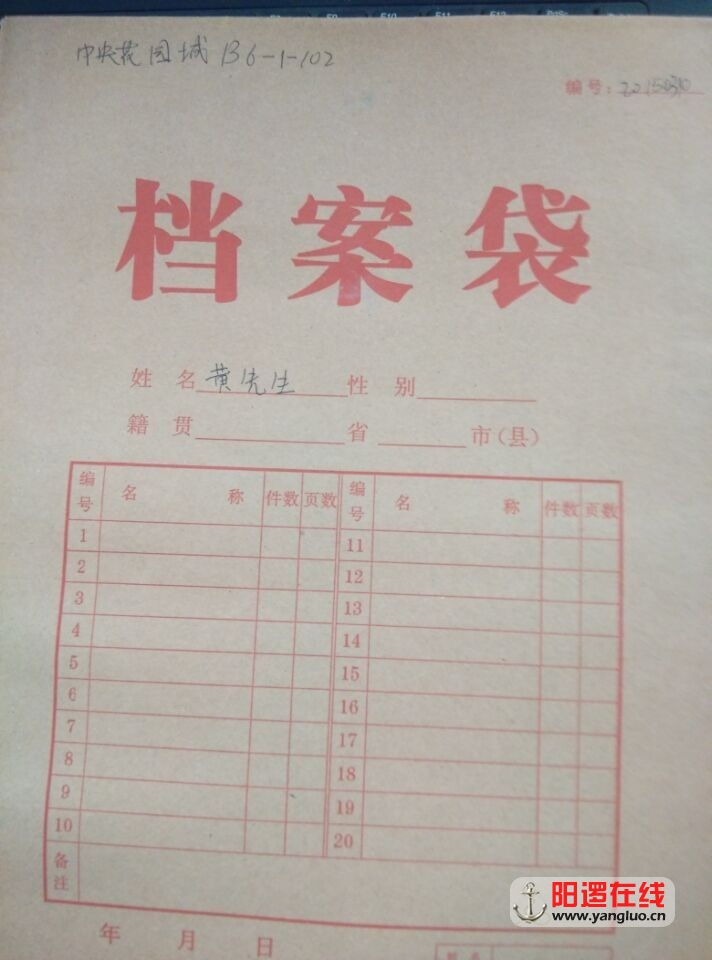 中央花园城 B6-1-102
编号:20150310
档案袋
姓 名 黄先生 性 别
籍 贯 省 市(县)
编号 名 称 件数 页数 编号 名 称 件数 页数
1 11
2 12
3 13
4 14
5 15
6 16
7 17
8 18
9 19
10 20
备注
年 月 日
阳逻在线
www.yangluo.cn